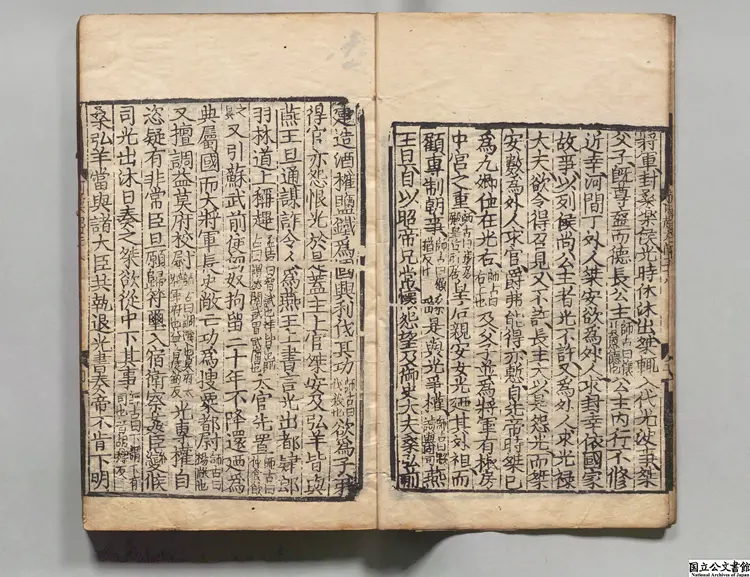 將軍封桑樂侯光時休沐出桀輒入代光決事桀
父子既尊盛而德長公主師古曰懷其恩德也公主內行不修
近幸河間丁外人桀安欲為外人求封幸依國家
故事以列侯尚公主者光不許又為外人求光祿
大夫欲令得召見又不許長主大以是怨光而桀
安數為外人求官爵弗能得亦慙自先帝時桀已
為九卿位在光右師古曰右上也及父子並為將軍有椒房
中宮之重皇后親安女光廼其外祖而
顧專制朝事師古曰顧猶反也繇是與光爭權燕
王旦自以昭帝兄常懷怨望及御史大夫桑弘羊
建造酒榷鹽鐵為國興利伐其功師古曰伐矜也欲為子弟
得官亦怨恨光於是蓋主上官桀安及弘羊皆與
燕王旦通謀詐令人為燕王上書言光出都肄郎
羽林道上稱䟆太官先置
又引蘇武前使匈奴拘留二十年不降還廼為
典屬國而大將軍長史敞亡功為搜粟都尉
又擅調益莫府校尉光專權自
恣疑有非常臣旦願歸符璽入宿衛察姦臣變候
司光出沐日奏之桀欲從中下其事
桑弘羊當與諸大臣共執退光書奏帝不肯下明
国立公文書館
National Archives of Japan